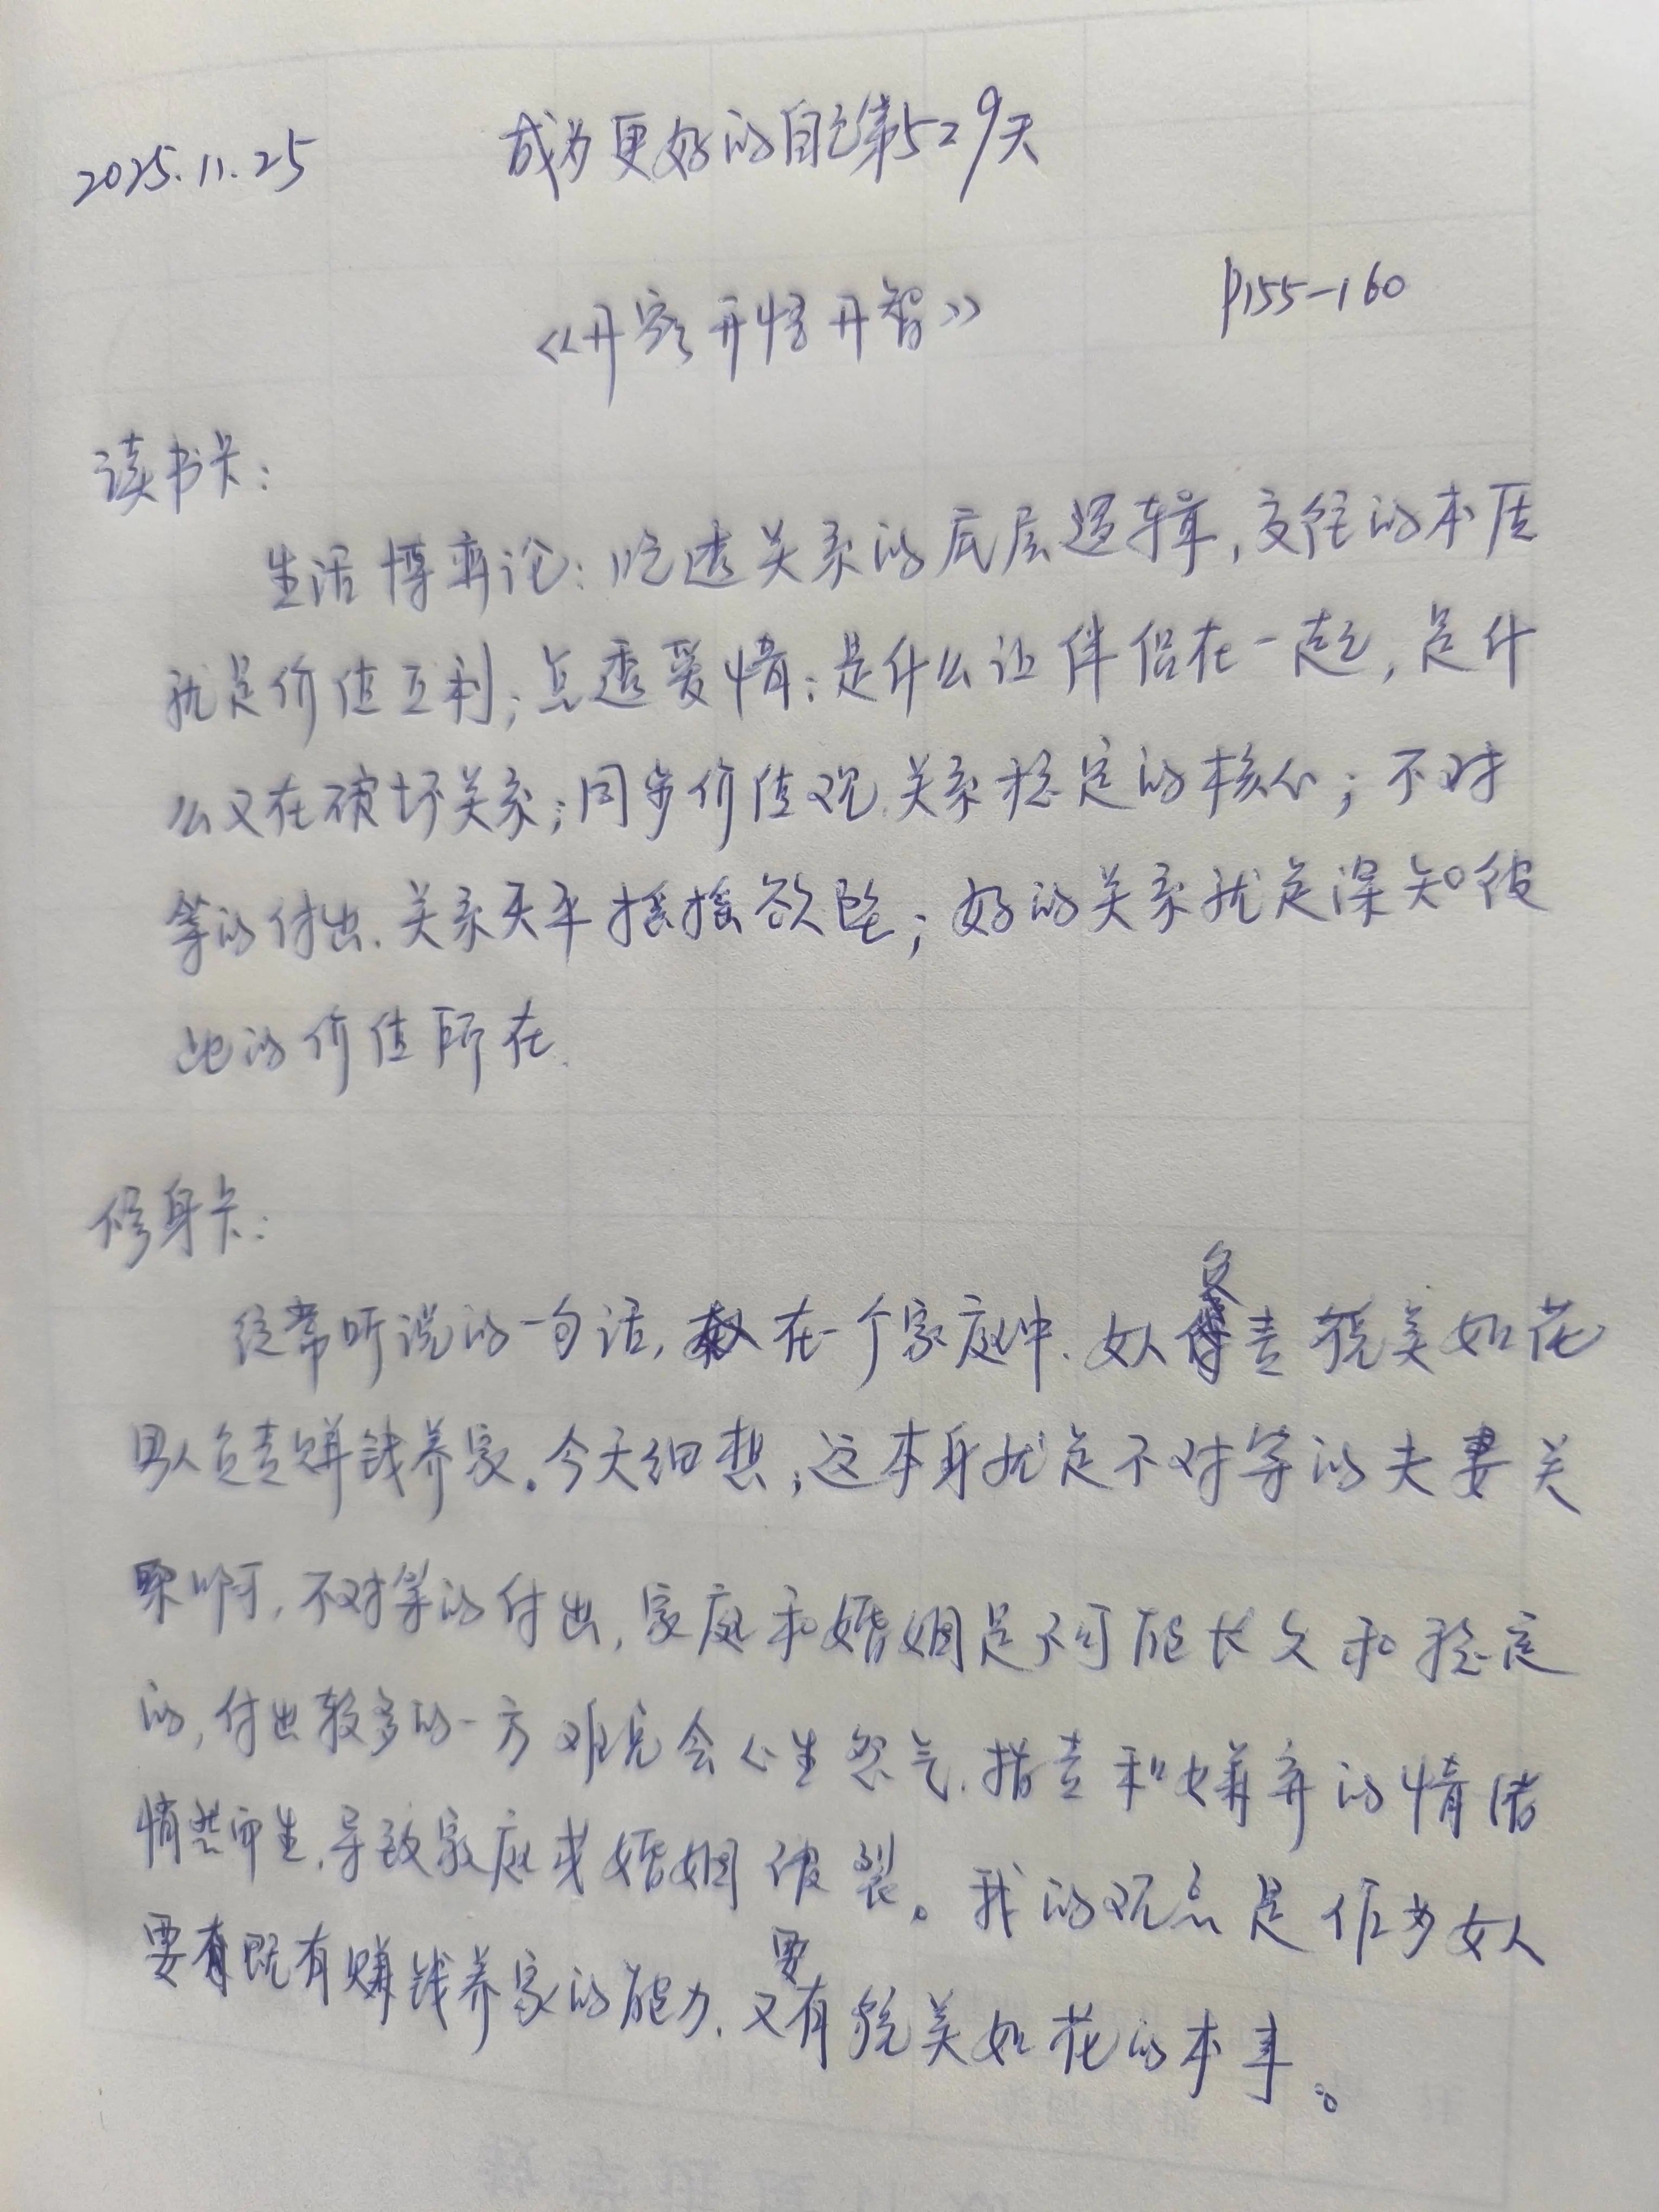 2025.11.25 成为更好的自己第529天
《开窍开悟开智》 P155-160
读书卡：
生活博弈论：吃透关系的底层逻辑，交往的本质
就是价值互利；点透爱情：是什么让伴侣在一起，是什
么又在破坏关系；同步价值观，关系稳定的核心；不对
等的付出，关系天平摇摇欲坠；好的关系就是深知彼
此的价值所在.
修身卡：
经常听说的一句话，在一个家庭中，女人负责貌美如花
男人负责赚钱养家。今天细想，这本身就是不对等的夫妻关
系啊，不对等的付出，家庭和婚姻是不可能长久和稳定
的，付出较多的一方难免会心生怨气，指责和嫌弃的情绪
悄然而生，导致家庭或婚姻破裂。我的观点是作为女人
要既有赚钱养家的能力，又要有貌美如花的本事。